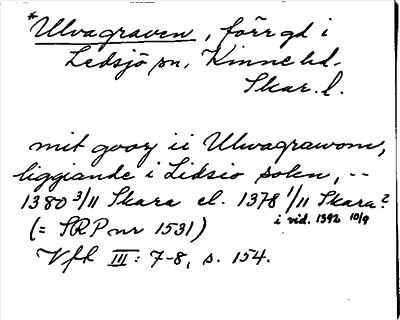 *Ulvagraven, förr gd i
Ledsjö sn, Kinne hd.
Skar. l.
mit gooz ii Ulwagrawom,
liggiande i Lidsio sokn, --
1380 3/11 Skara el. 1378 1/11 Skara?
i vid. 1392 10/9
(= SRP nr 1531)
Vfl III: 7-8, s. 154.